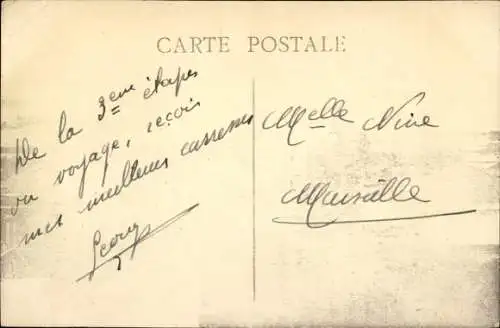 CARTE POSTALE
De la 3eme étapes
du voyage, reçois
mes meilleurs caresses
Melle Nine
Marseille